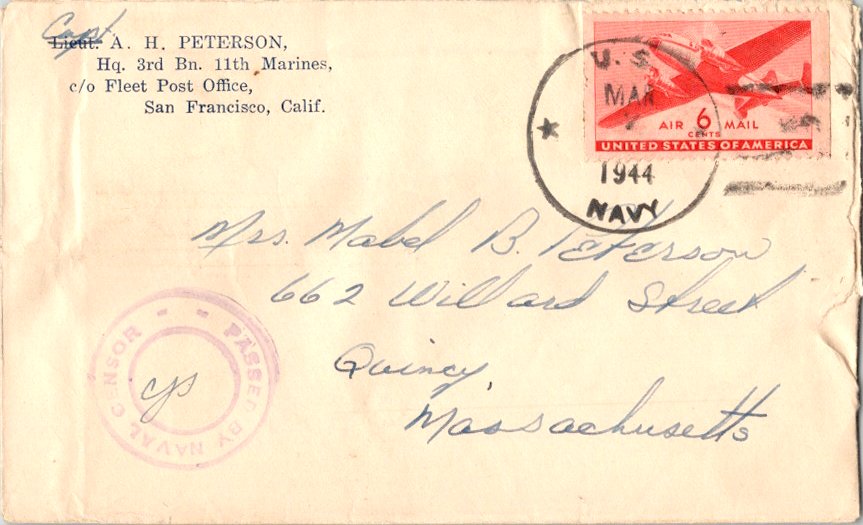 Capt.
Lieut. A. H. PETERSON,
Hq. 3rd Bn. 11th Marines,
c/o Fleet Post Office,
San Francisco, Calif.
U.S.
MAR
1944
NAVY
AIR 6 MAIL
CENTS
UNITED STATES OF AMERICA
Mrs. Mabel B. Peterson
662 Willard Street
Quincy,
Massachusetts
PASSED BY NAVAL CENSOR